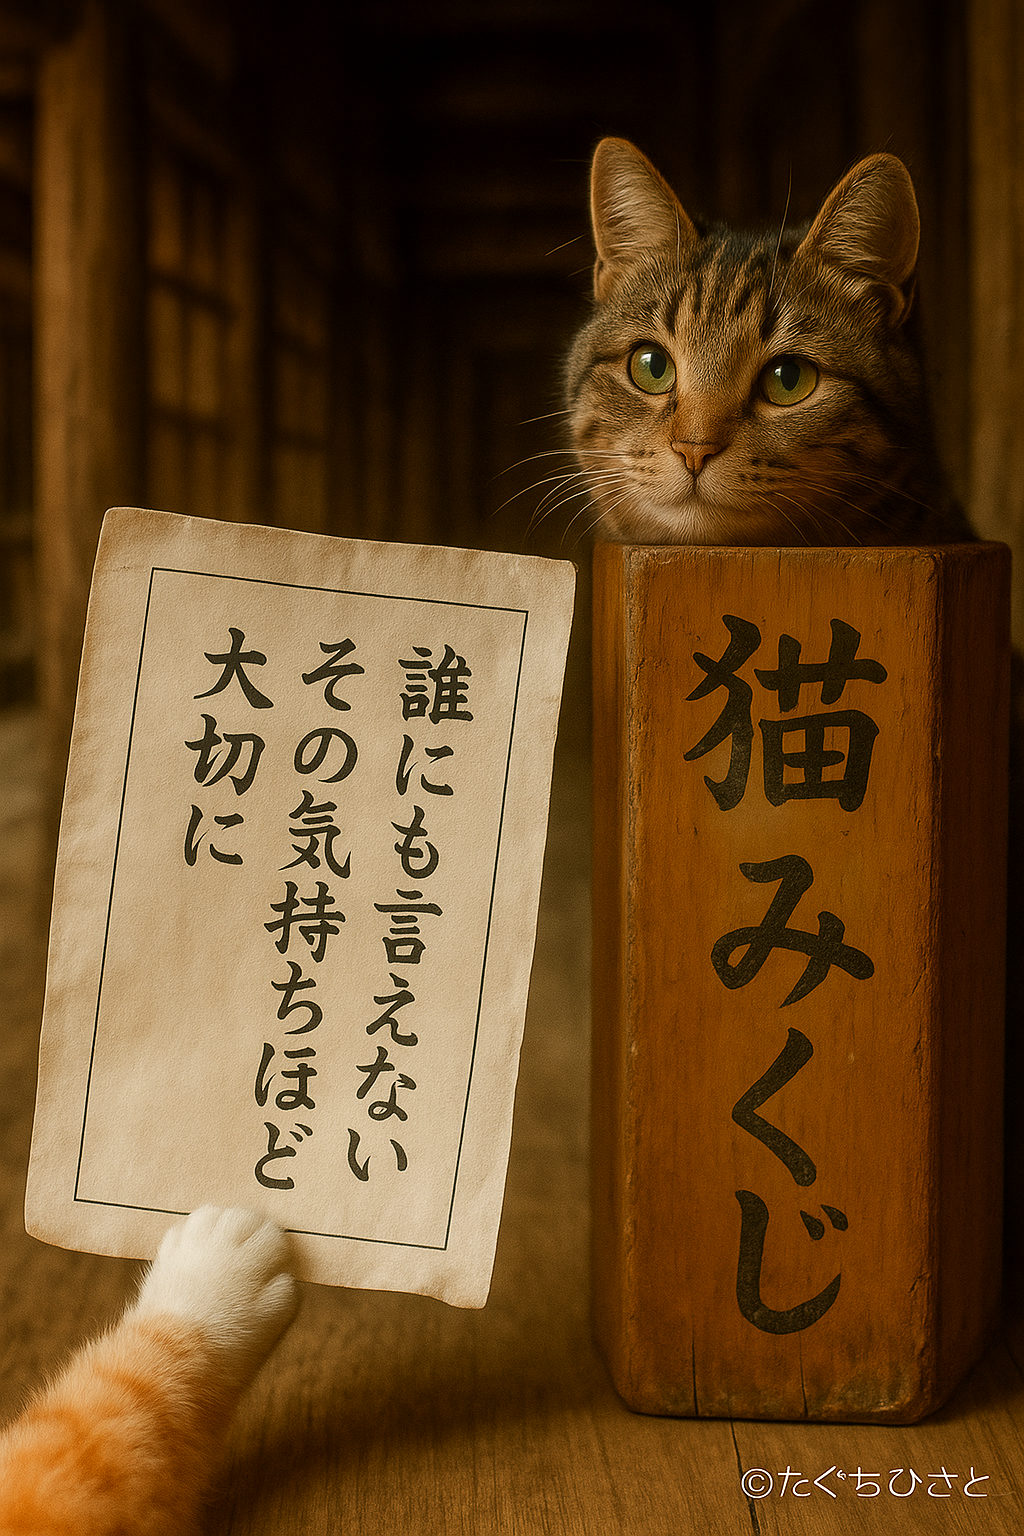 誰にも言えない
その気持ちほど
大切に
猫みくじ
©たぐちひさと